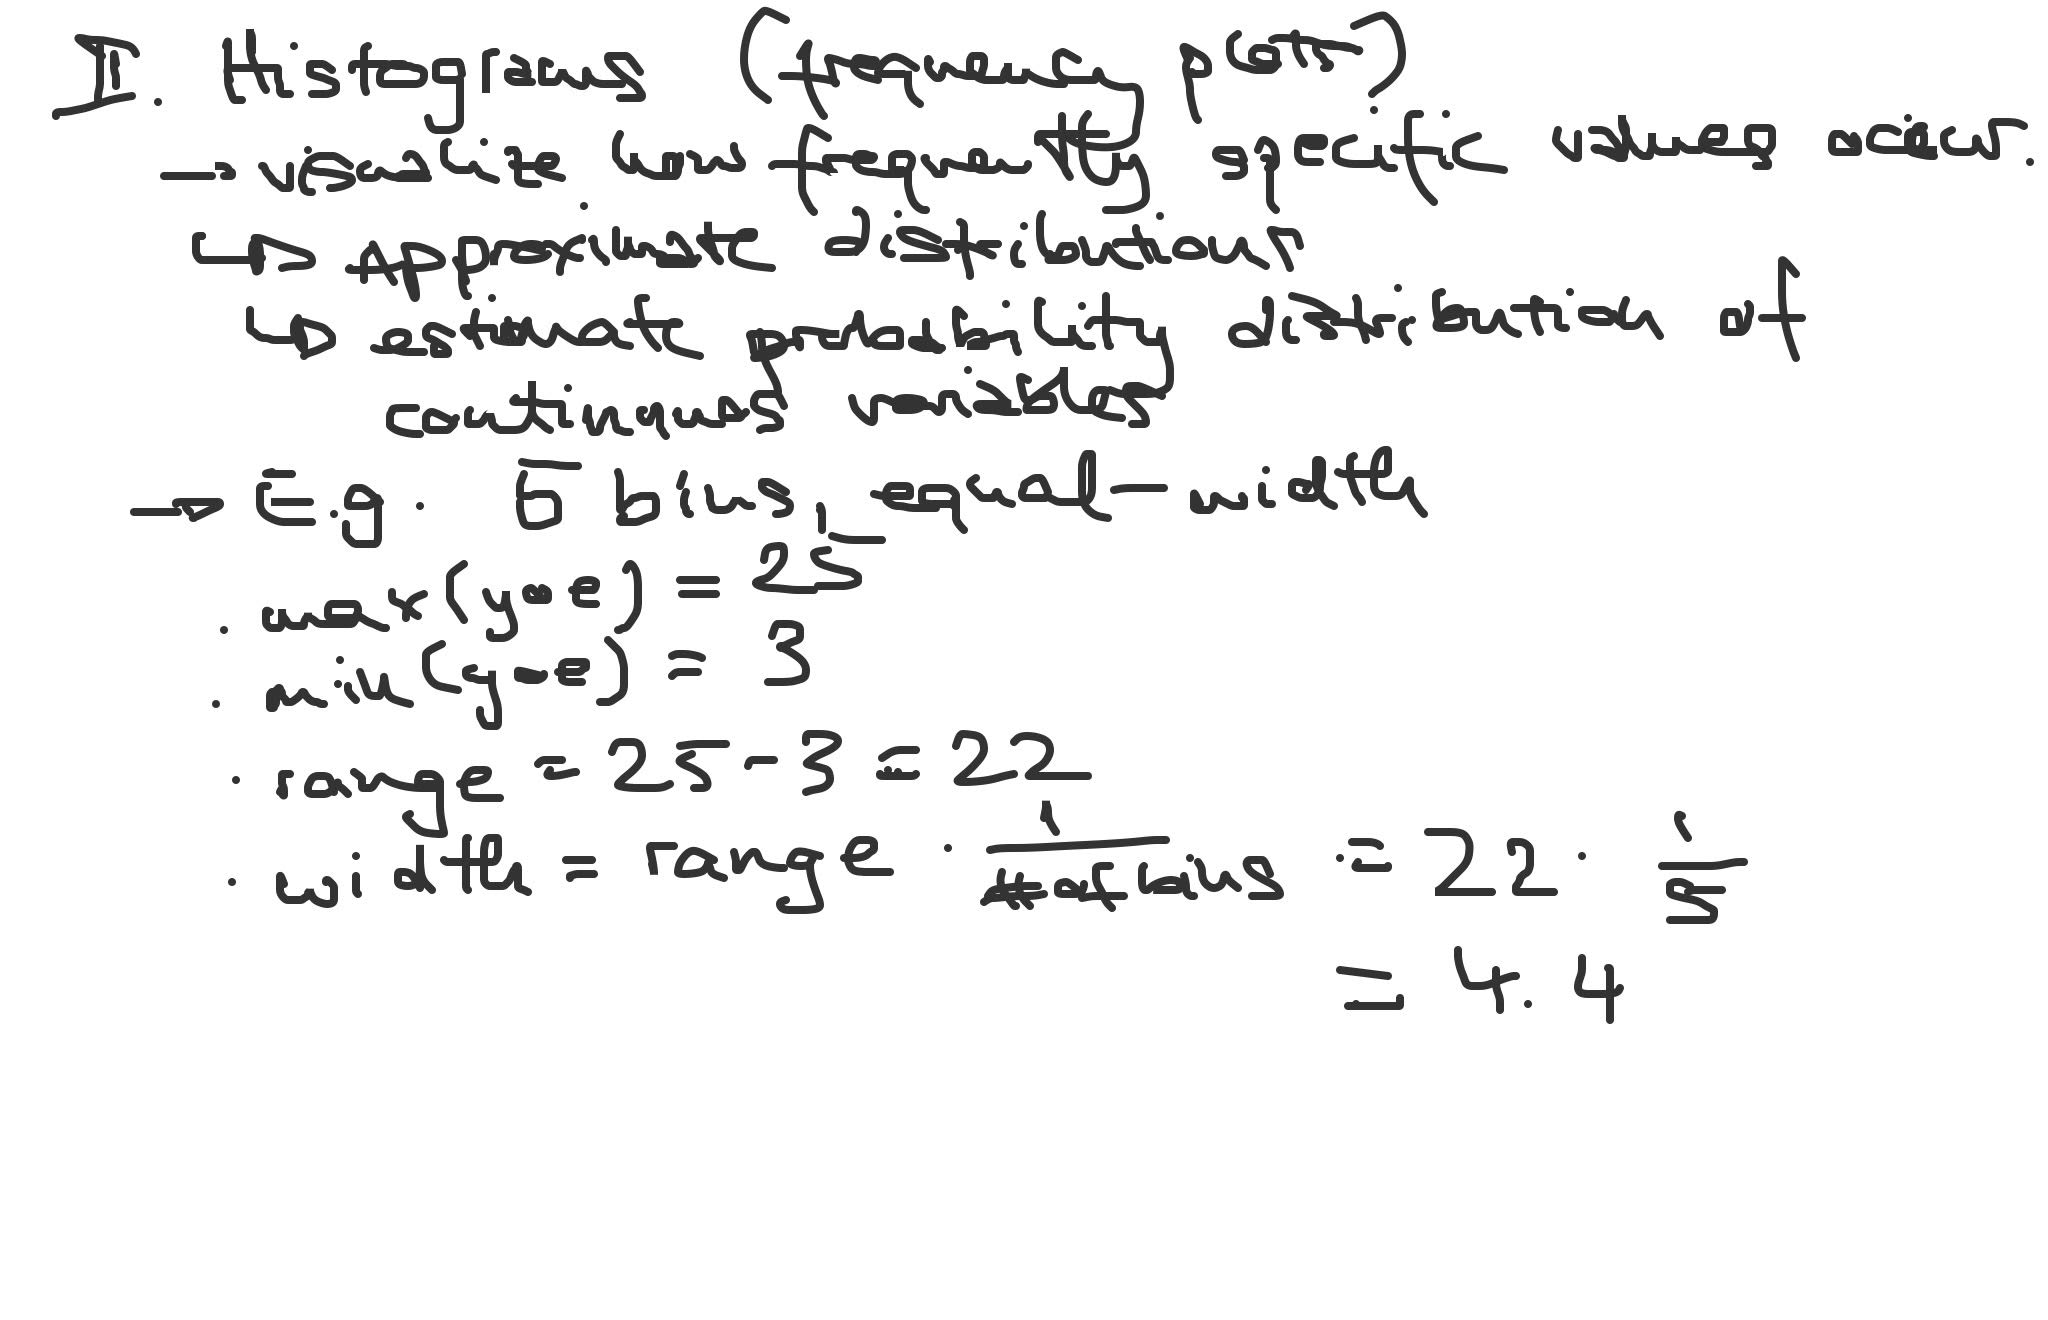 II. Histograms (frequency plots)
→ visualize how frequently specific values occur.
↳ Approximate distributions
↳ estimate probability distribution of
continuous variables
→ E.g. 5 bins, equal-width
· max(yoe) = 25
· min(yoe) = 3
· range = 25 - 3 = 22
· width = range · 1/# of bins = 22 · 1/5
= 4.4